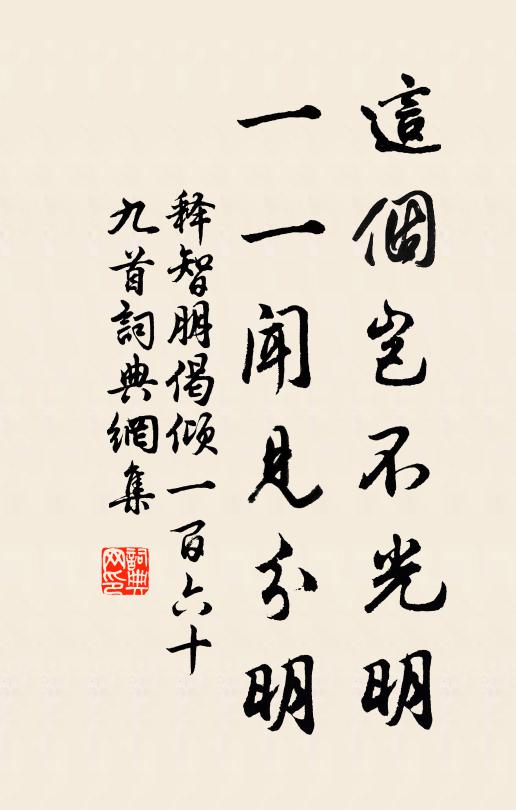 這個岂不光明
一一聞見分明
释智朋偈倾一百六十
九首詞典網集
詞典
网印